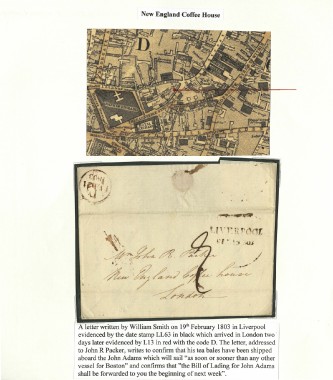 New England Coffee House
D
LIVERPOOL
Mr John R Packer
New England Coffee house
London
A letter written by William Smith on 19th February 1803 in Liverpool
evidenced by the date stamp LL63 in black which arrived in London two
days later evidenced by L13 in red with the code D. The letter, addressed
to John R Packer, writes to confirm that his tea bales have been shipped
aboard the John Adams which will sail "as soon or sooner than any other
vessel for Boston" and confirms that "the Bill of Lading for John Adams
shall be forwarded to you the beginning of next week".